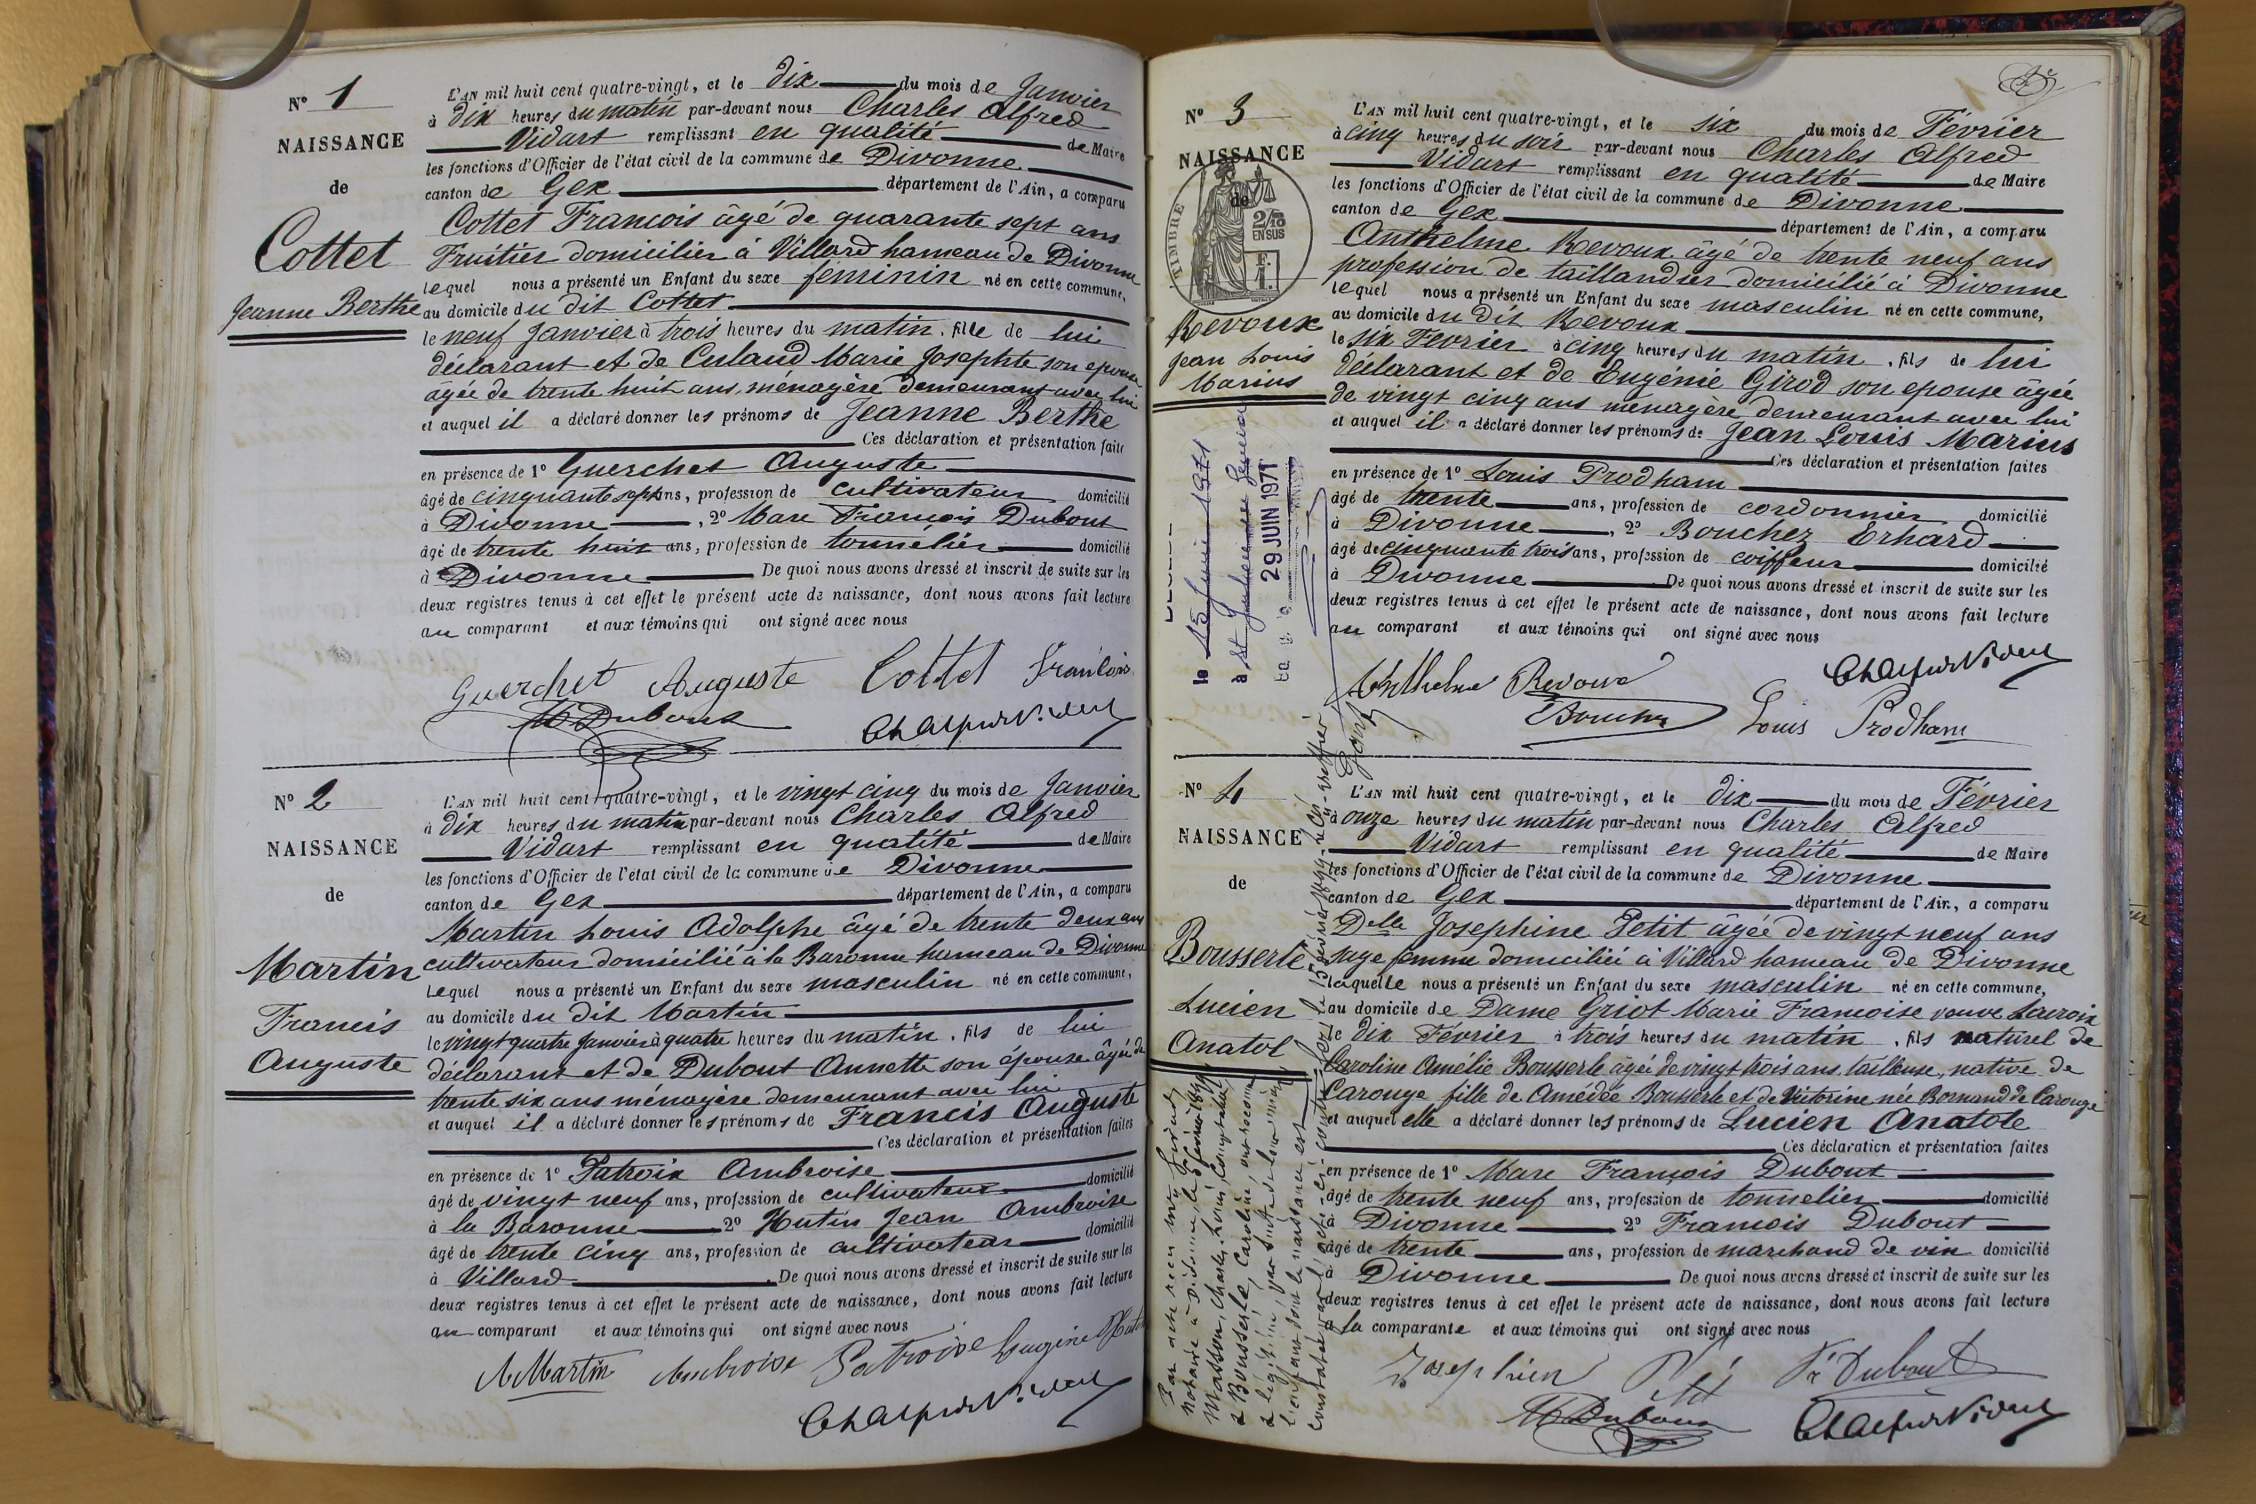 N° 1
NAISSANCE
de
Cottet
Jeanne Berthe
L'AN mil huit cent quatre-vingt, et le dix du mois de Janvier
à dix heures du matin par-devant nous Charles Alfred
Vidart remplissant en qualité de Maire
les fonctions d'Officier de l'état civil de la commune de Divonne
canton de Gex département de l'Ain, a comparu
Cottet François âgé de quarante sept ans
Fruitier domicilier à Villard hameau de Divonne
lequel nous a présenté un Enfant du sexe féminin né en cette commune,
au domicile du dit Cottet
le neuf Janvier à trois heures du matin, fille de lui
déclarant et de Culaud Marie Josephte son epouse
âgée de trente huit ans, ménagère demeurant avec lui
et auquel il a déclaré donner les prénoms de Jeanne Berthe
Ces déclaration et présentation faite
en présence de 1° Guerchet Auguste
âgé de cinquante sept ans, profession de cultivateur domicilié
à Divonne, 2° Marc François Dubout
âgé de trente huit ans, profession de tonnelier domicilié
à Divonne De quoi nous avons dressé et inscrit de suite sur les
deux registres tenus à cet effet le présent acte de naissance, dont nous avons fait lecture
au comparant et aux témoins qui ont signé avec nous
Guerchet Auguste Cottet François
M Dubout Ch Alfred Vidart
N° 2
NAISSANCE
de
Martin
Francis
Auguste
L'AN mil huit cent quatre-vingt, et le vingt cinq du mois de Janvier
à dix heures du matin par-devant nous Charles Alfred
Vidart remplissant en qualité de Maire
les fonctions d'Officier de l'état civil de la commune de Divonne
canton de Gex département de l'Ain, a comparu
Martin Louis Adolphe âgé de trente deux ans
cultivateur domicilié à la Baronne hameau de Divonne
Lequel nous a présenté un Enfant du sexe masculin né en cette commune,
au domicile du dit Martin
le vingt quatre Janvier à quatre heures du matin, fils de lui
déclarant et de Dubout Annette son épouse âgée de
trente six ans ménagère demeurant avec lui
et auquel il a déclaré donner les prénoms de Francis Auguste
Ces déclaration et présentation faites
en présence de 1° Patroix Ambroise
âgé de vingt neuf ans, profession de cultivateur domicilié
à la Baronne 2° Hutin Jean Ambroise
âgé de trente cinq ans, profession de cultivateur domicilié
à Villard De quoi nous avons dressé et inscrit de suite sur les
deux registres tenus à cet effet le présent acte de naissance, dont nous avons fait lecture
au comparant et aux témoins qui ont signé avec nous
A Martin Ambroise Patroix Hutin
Ch Alfred Vidart
N° 3
NAISSANCE
de
TIMBRE
2/10
EN SUS
F.
1.
Revoux
Jean Louis
Marius
le 15 Juin 1971
à St Julien en Genevois
29 JUIN 1971
L'AN mil huit cent quatre-vingt, et le six du mois de Février
à cinq heures du soir par-devant nous Charles Alfred
Vidart remplissant en qualité de Maire
les fonctions d'Officier de l'état civil de la commune de Divonne
canton de Gex département de l'Ain, a comparu
Anthelme Revoux âgé de trente neuf ans
profession de taillandier domicilié à Divonne
lequel nous a présenté un Enfant du sexe masculin né en cette commune,
au domicile du dit Revoux
le six Fevrier à cinq heures du matin, fils de lui
déclarant et de Eugénie Girod son epouse âgée
de vingt cinq ans ménagère demeurant avec lui
et auquel il a déclaré donner les prénoms de Jean Louis Marius
Ces déclaration et présentation faites
en présence de 1° Louis Prodham
âgé de trente ans, profession de cordonnier domicilié
à Divonne, 2° Bouchez Erhard
âgé de cinquante trois ans, profession de coiffeur domicilié
à Divonne De quoi nous avons dressé et inscrit de suite sur les
deux registres tenus à cet effet le présent acte de naissance, dont nous avons fait lecture
au comparant et aux témoins qui ont signé avec nous
Ch Alfred Vidart
Anthelme Revoux
Bouchez Louis Prodham
N° 4
NAISSANCE
de
Bousserle
Lucien
Anatol
L'AN mil huit cent quatre-vingt, et le dix du mois de Février
à onze heures du matin par-devant nous Charles Alfred
Vidart remplissant en qualité de Maire
les fonctions d'Officier de l'état civil de la commune de Divonne
canton de Gex département de l'Ain, a comparu
Delle Josephine Petit âgée de vingt neuf ans
sage femme domiciliée à Villard hameau de Divonne
laquelle nous a présenté un Enfant du sexe masculin né en cette commune,
au domicile de Dame Griot Marie Françoise veuve Lacroix
le dix Février à trois heures du matin, fils naturel de
Caroline Amélie Bousserle âgée de vingt trois ans, tailleuse, native de
Carouge fille de Amédée Bousserle et de Victorine née Bornand de Carouge
et auquel elle a déclaré donner les prénoms de Lucien Anatole
Ces déclaration et présentation faites
en présence de 1° Marc François Dubout
âgé de trente neuf ans, profession de tonnelier domicilié
à Divonne 2° François Dubout
âgé de trente ans, profession de marchand de vin domicilié
à Divonne De quoi nous avons dressé et inscrit de suite sur les
deux registres tenus à cet effet le présent acte de naissance, dont nous avons fait lecture
à la comparante et aux témoins qui ont signé avec nous
Josephine Petit Fr Dubout
M Dubout Ch Alfred Vidart
Par acte reçu Me
notaire à Divonne, le février
Masson, Charles, Louis, comptable
& Bousserle, Caroline, ont reconnu
& légitimé, par suite de leur mariage
l'enfant dont la naissance est
constatée par l'acte ci contre